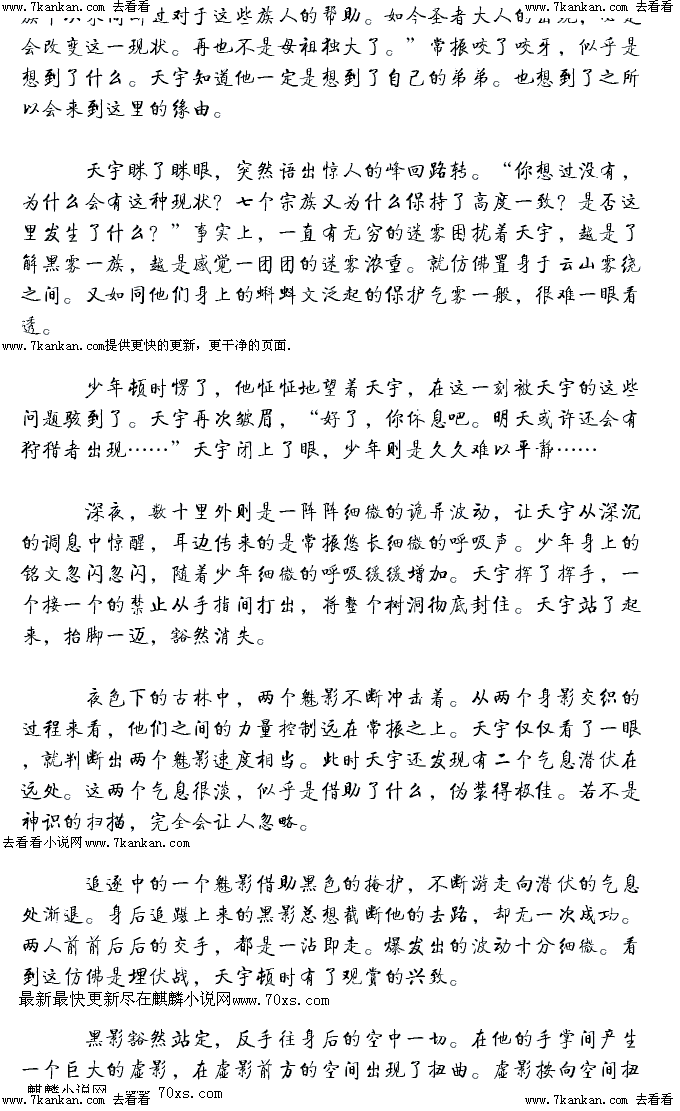 www.7kankan.com 去看看 www.7kankan.com 去看看 www.7kankan.com 去看看
会改变这一现状。再也不是母祖独大了。”常振咬了咬牙，似乎是
想到了什么。天宇知道他一定是想到了自己的弟弟。也想到了之所
以会来到这里的缘由。
天宇眯了眯眼，突然语出惊人的峰回路转。“你想过没有，
为什么会有这种现状？七个宗族又为什么保持了高度一致？是否这
里发生了什么？”事实上，一直有无穷的迷雾困扰着天宇，越是了
解黑雾一族，越是感觉一团团的迷雾浓重。就仿佛置身于云山雾绕
之间。又如同他们身上的蝌蚪文泛起的保护气雾一般，很难一眼看
透。
www.7kankan.com提供更快的更新，更干净的页面.
少年顿时愣了，他怔怔地望着天宇，在这一刻被天宇的这些
问题骇到了。天宇再次皱眉，“好了，你休息吧。明天或许还会有
狩猎者出现……”天宇闭上了眼，少年则是久久难以平静……
深夜，数十里外则是一阵阵细微的诡异波动，让天宇从深沉
的调息中惊醒，耳边传来的是常振悠长细微的呼吸声。少年身上的
铭文忽闪忽闪，随着少年细微的呼吸缓缓增加。天宇挥了挥手，一
个接一个的禁止从手指间打出，将整个树洞彻底封住。天宇站了起
来，抬脚一迈，豁然消失。
夜色下的古林中，两个魅影不断冲击着。从两个身影交织的
过程来看，他们之间的力量控制远在常振之上。天宇仅仅看了一眼
，就判断出两个魅影速度相当。此时天宇还发现有二个气息潜伏在
远处。这两个气息很淡，似乎是借助了什么，伪装得极佳。若不是
神识的扫描，完全会让人忽略。
去看看小说网www.7kankan.com
追逐中的一个魅影借助黑色的掩护，不断游走向潜伏的气息
处渐退。身后追蹑上来的黑影总想截断他的去路，却无一次成功。
两人前前后后的交手，都是一沾即走。爆发出的波动十分细微。看
到这仿佛是埋伏战，天宇顿时有了观赏的兴致。
最新最快更新尽在麒麟小说网www.70xs.com
黑影豁然站定，反手往身后的空中一切。在他的手掌间产生
一个巨大的虚影，在虚影前方的空间出现了扭曲。虚影按向空间扭
麒麟小说网 www.70xs.com
www.7kankan.com 去看看 www.7kankan.com 去看看